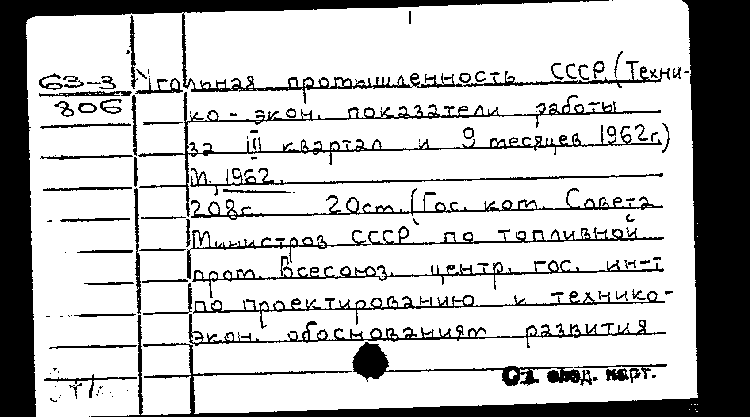 63-3 Угольная промышленность СССР (Техни-
806 ко-экон. показатели работы
за III квартал и 9 месяцев 1962г.)
М., 1962.
208с. 20см. (Гос. ком. Совета
Министров СССР по топливной
пром. Всесоюз. центр. гос. ин-т
по проектированию и технико-
экон. обоснованиям развития
См. след. карт.